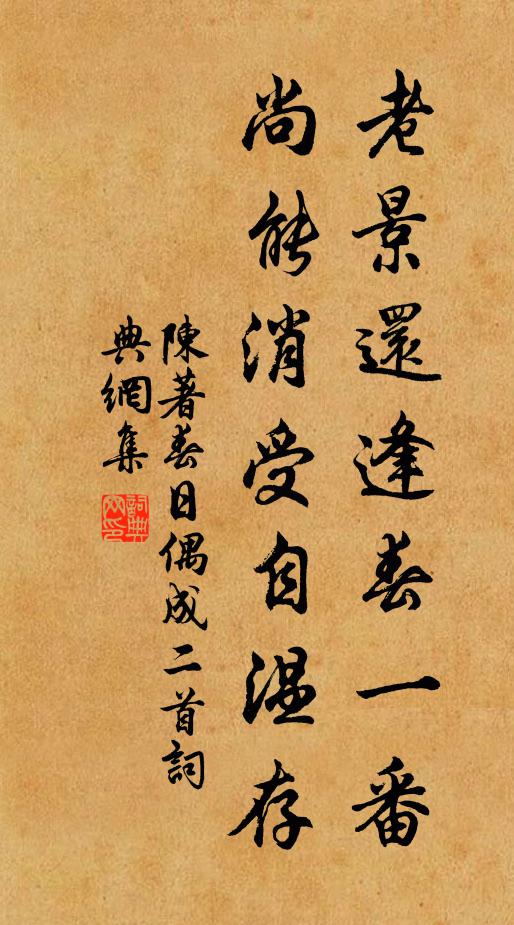 老景還逢春一番
尚能消受自溫存
陳著春日偶成二首詞
典網集
詞典網印